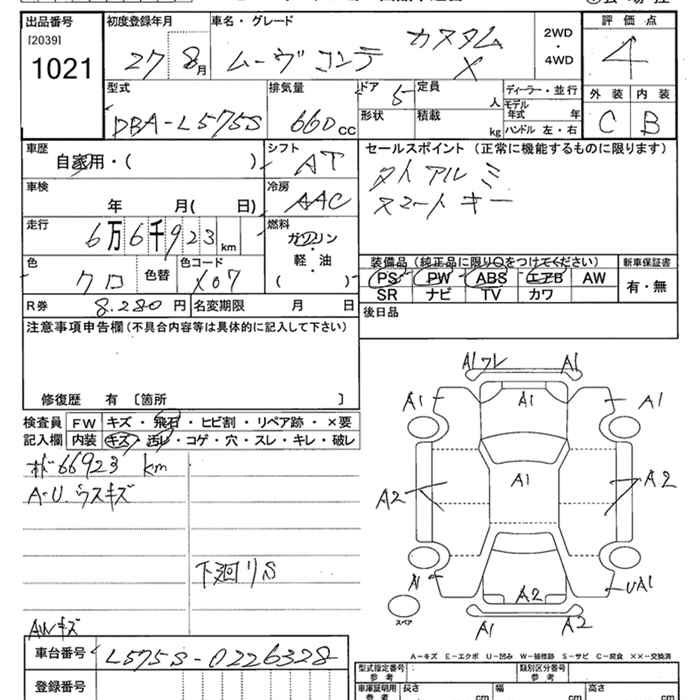 出品番号 初度登録年月 車名・グレード 評価点
[2039]
1021
27 8月 ムーヴ コンテ カスタム X 2WD・4WD 4
型式 排気量 ドア 定員 ディーラー・並行 外装 内装
DBA-L575S 660cc 5 人 モデル年式 年 C B
形状 積載 kg ハンドル 左・右
車歴 シフト セールスポイント (正常に機能するものに限ります)
自家用・( ) AT
車検 冷房 タイアルミ
年 月( 日) AAC スマートキー
走行 燃料
6万6千923km ガソリン・軽・油
( )
色 色替 色コード 装備品 (純正品に限り○をつけてください) 新車保証書
クロ X07 PS PW ABS エアB AW 有・無
SR ナビ TV カワ
R券 8.280円 名変期限 月 日 後日品
注意事項申告欄 (不具合内容等は具体的に記入して下さい)
修復歴 有 〔箇所 〕
検査員記入欄 FW キズ・飛石・ヒビ割・リペア跡・×要
内装 キズ・汚レ・コゲ・穴・スレ・キレ・破レ
66923 km
A-U.ウスキズ
下廻りS
AWキズ
A1ワレ A1
A1 A1 A1
A2 A1 A2
A2 UA1
A1 A2
スペア
A-キズ E-エクボ U-凹み W-補修跡 S-サビ C-腐食 XX-交換済
車台番号 L575S-0226328
型式指定番号 参考 類別区分番号 参考
登録番号 車庫証明用 参考 長さ cm 幅 cm 高さ cm